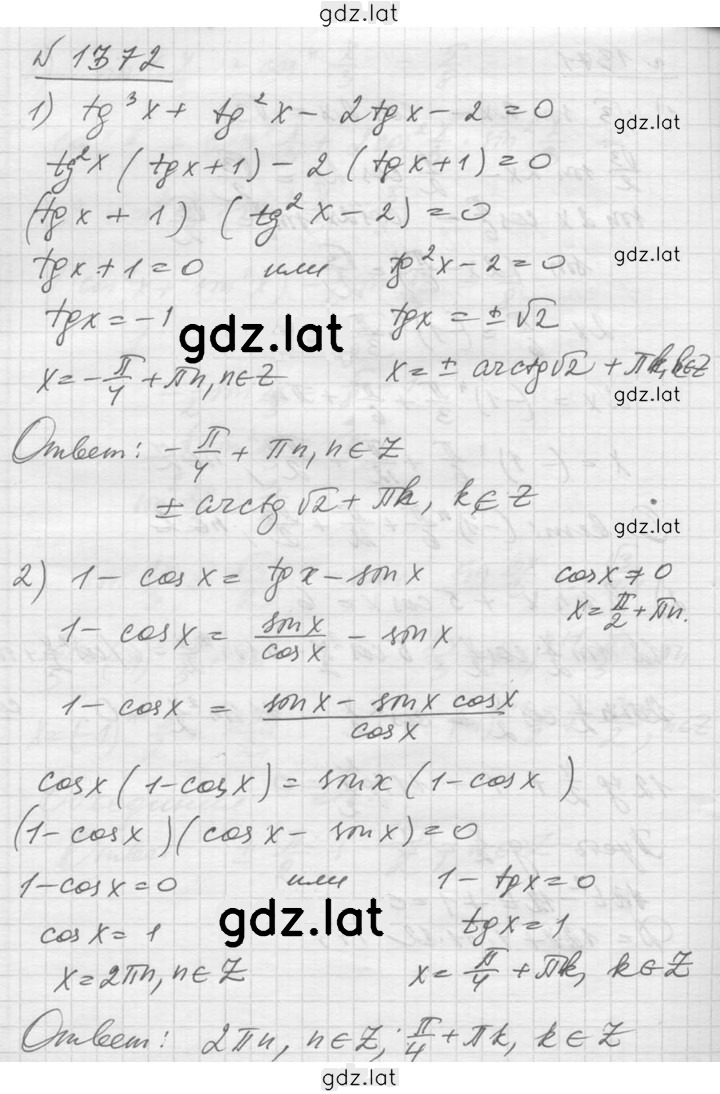 gdz.lat
№ 1372
1) tg³x + tg²x − 2tgx − 2 = 0
gdz.lat
tg²x (tgx+1) − 2 (tgx+1) = 0
(tgx + 1) (tg²x − 2) = 0
gdz.lat
tgx + 1 = 0 или tg²x − 2 = 0
tgx = −1 tgx = ± √2
gdz.lat
x = −π/4 + πn, n∈Z x = ± arctg√2 + πk, k∈Z
gdz.lat
Ответ: −π/4 + πn, n∈Z
± arctg√2 + πk, k∈Z
gdz.lat
2) 1 − cosx = tgx − sinx cosx ≠ 0
x = π/2 + πn.
1 − cosx = sinx/cosx − sinx
1 − cosx = (sinx − sinx cosx)/cosx
cosx (1−cosx) = sinx (1−cosx)
(1−cosx)(cosx − sinx) = 0
1−cosx = 0 или 1 − tgx = 0
gdz.lat
cosx = 1 tgx = 1
x = 2πn, n∈Z x = π/4 + πk, k∈Z
Ответ: 2πn, n∈Z; π/4 + πk, k∈Z
gdz.lat